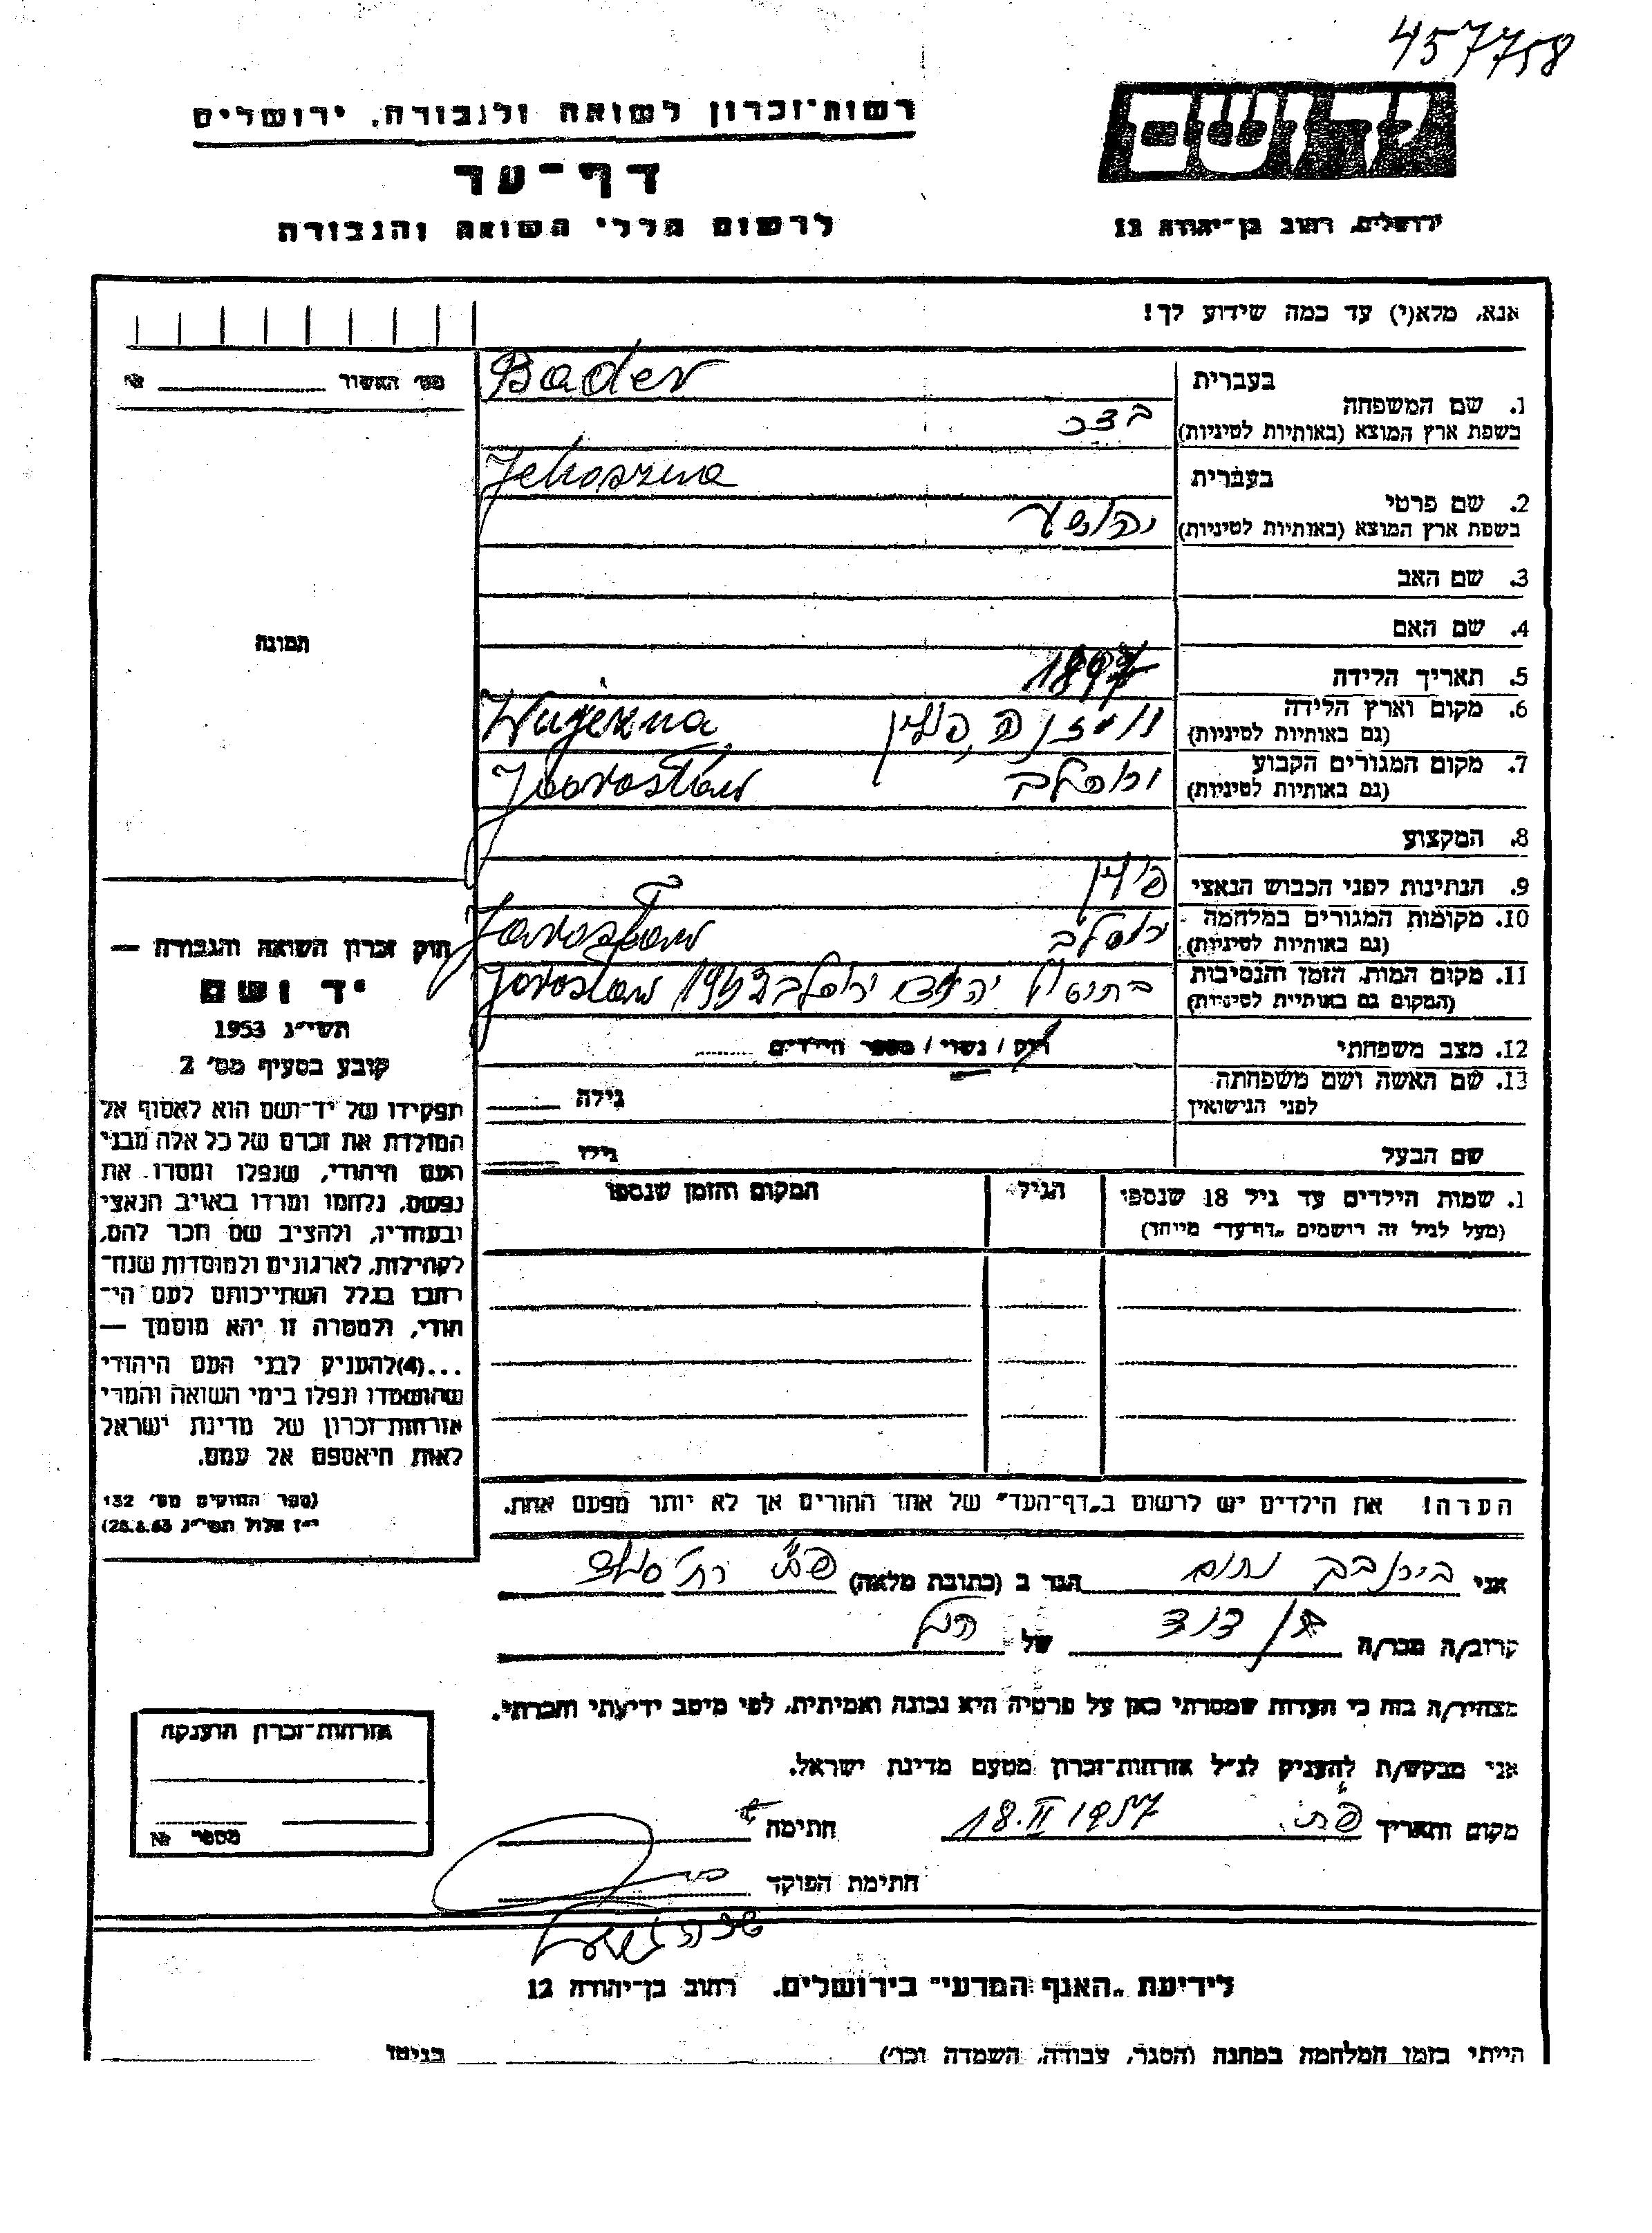 457758
רשות־זכרון לשואה ולגבורה, ירושלים
יד ושם
דף־עד
לרשום חללי השואה והגבורה
ירושלים, רחוב בן־יהודה 12
אנא, מלא(י) עד כמה שידוע לך!
מס׳ האשור №
תמונה
1. שם המשפחה בעברית
Bader
בשפת ארץ המוצא (באותיות לטיניות)
2. שם פרטי בעברית
Jehoszua
בשפת ארץ המוצא (באותיות לטיניות) יהושע
3. שם האב
4. שם האם
5. תאריך הלידה 1897
6. מקום וארץ הלידה
(גם באותיות לטיניות) פולין
7. מקום המגורים הקבוע
(גם באותיות לטיניות) Jarosław
8. המקצוע
9. הנתינות לפני הכבוש הנאצי פולין
10. מקומות המגורים במלחמה
(גם באותיות לטיניות) Jarosław
11. מקום המות, הזמן והנסיבות
(המקום גם באותיות לטיניות) Jarosław
12. מצב משפחתי רוק / נשוי / מספר הילדים
13. שם האשה ושם משפחתה
לפני הנישואין גילה
שם הבעל גילו
1. שמות הילדים עד גיל 18 שנספו הגיל המקום והזמן שנספו
(מעל לגיל זה רושמים „דף־עד״ מיוחד)
הערה! את הילדים יש לרשום ב„דף־העד״ של אחד ההורים אך לא יותר מפעם אחת.
חוק זכרון השואה והגבורה —
יד ושם
תשי״ג 1953
קובע בסעיף מס׳ 2
תפקידו של יד־ושם הוא לאסוף אל
המולדת את זכרם של כל אלה מבני
העם היהודי, שנפלו ומסרו את
נפשם, נלחמו ומרדו באויב הנאצי
ובעוזריו, ולהציב שם וזכר להם,
לקהילות, לארגונים ולמוסדות שנח־
רבו בגלל השתייכותם לעם הי־
הודי, ולמטרה זו יהא מוסמך —
...(4)להעניק לבני העם היהודי
שהושמדו ונפלו בימי השואה והמרי
אזרחות־זכרון של מדינת ישראל
לאות היאספם אל עמם.
(ספר החוקים מס׳ 132
י״ז אלול תשי״ג 28.8.53)
אני נחום הגר ב (כתובת מלאה)
קרוב/ה מכר/ה בן דוד של הנ״ל
מצהיר/ה בזה כי העדות שמסרתי כאן על פרטיה היא נכונה ואמיתית, לפי מיטב ידיעתי והכרתי.
אני מבקש/ת להעניק לנ״ל אזרחות־זכרון מטעם מדינת ישראל.
מקום ותאריך 18.II 1957 חתימה
חתימת הפוקד
אזרחות־זכרון הוענקה
מספר №
לידיעת „האגף המדעי״ בירושלים, רחוב בן־יהודה 12
הייתי בזמן המלחמה במחנה (הסגר, עבודה, השמדה וכו׳) בגיטו